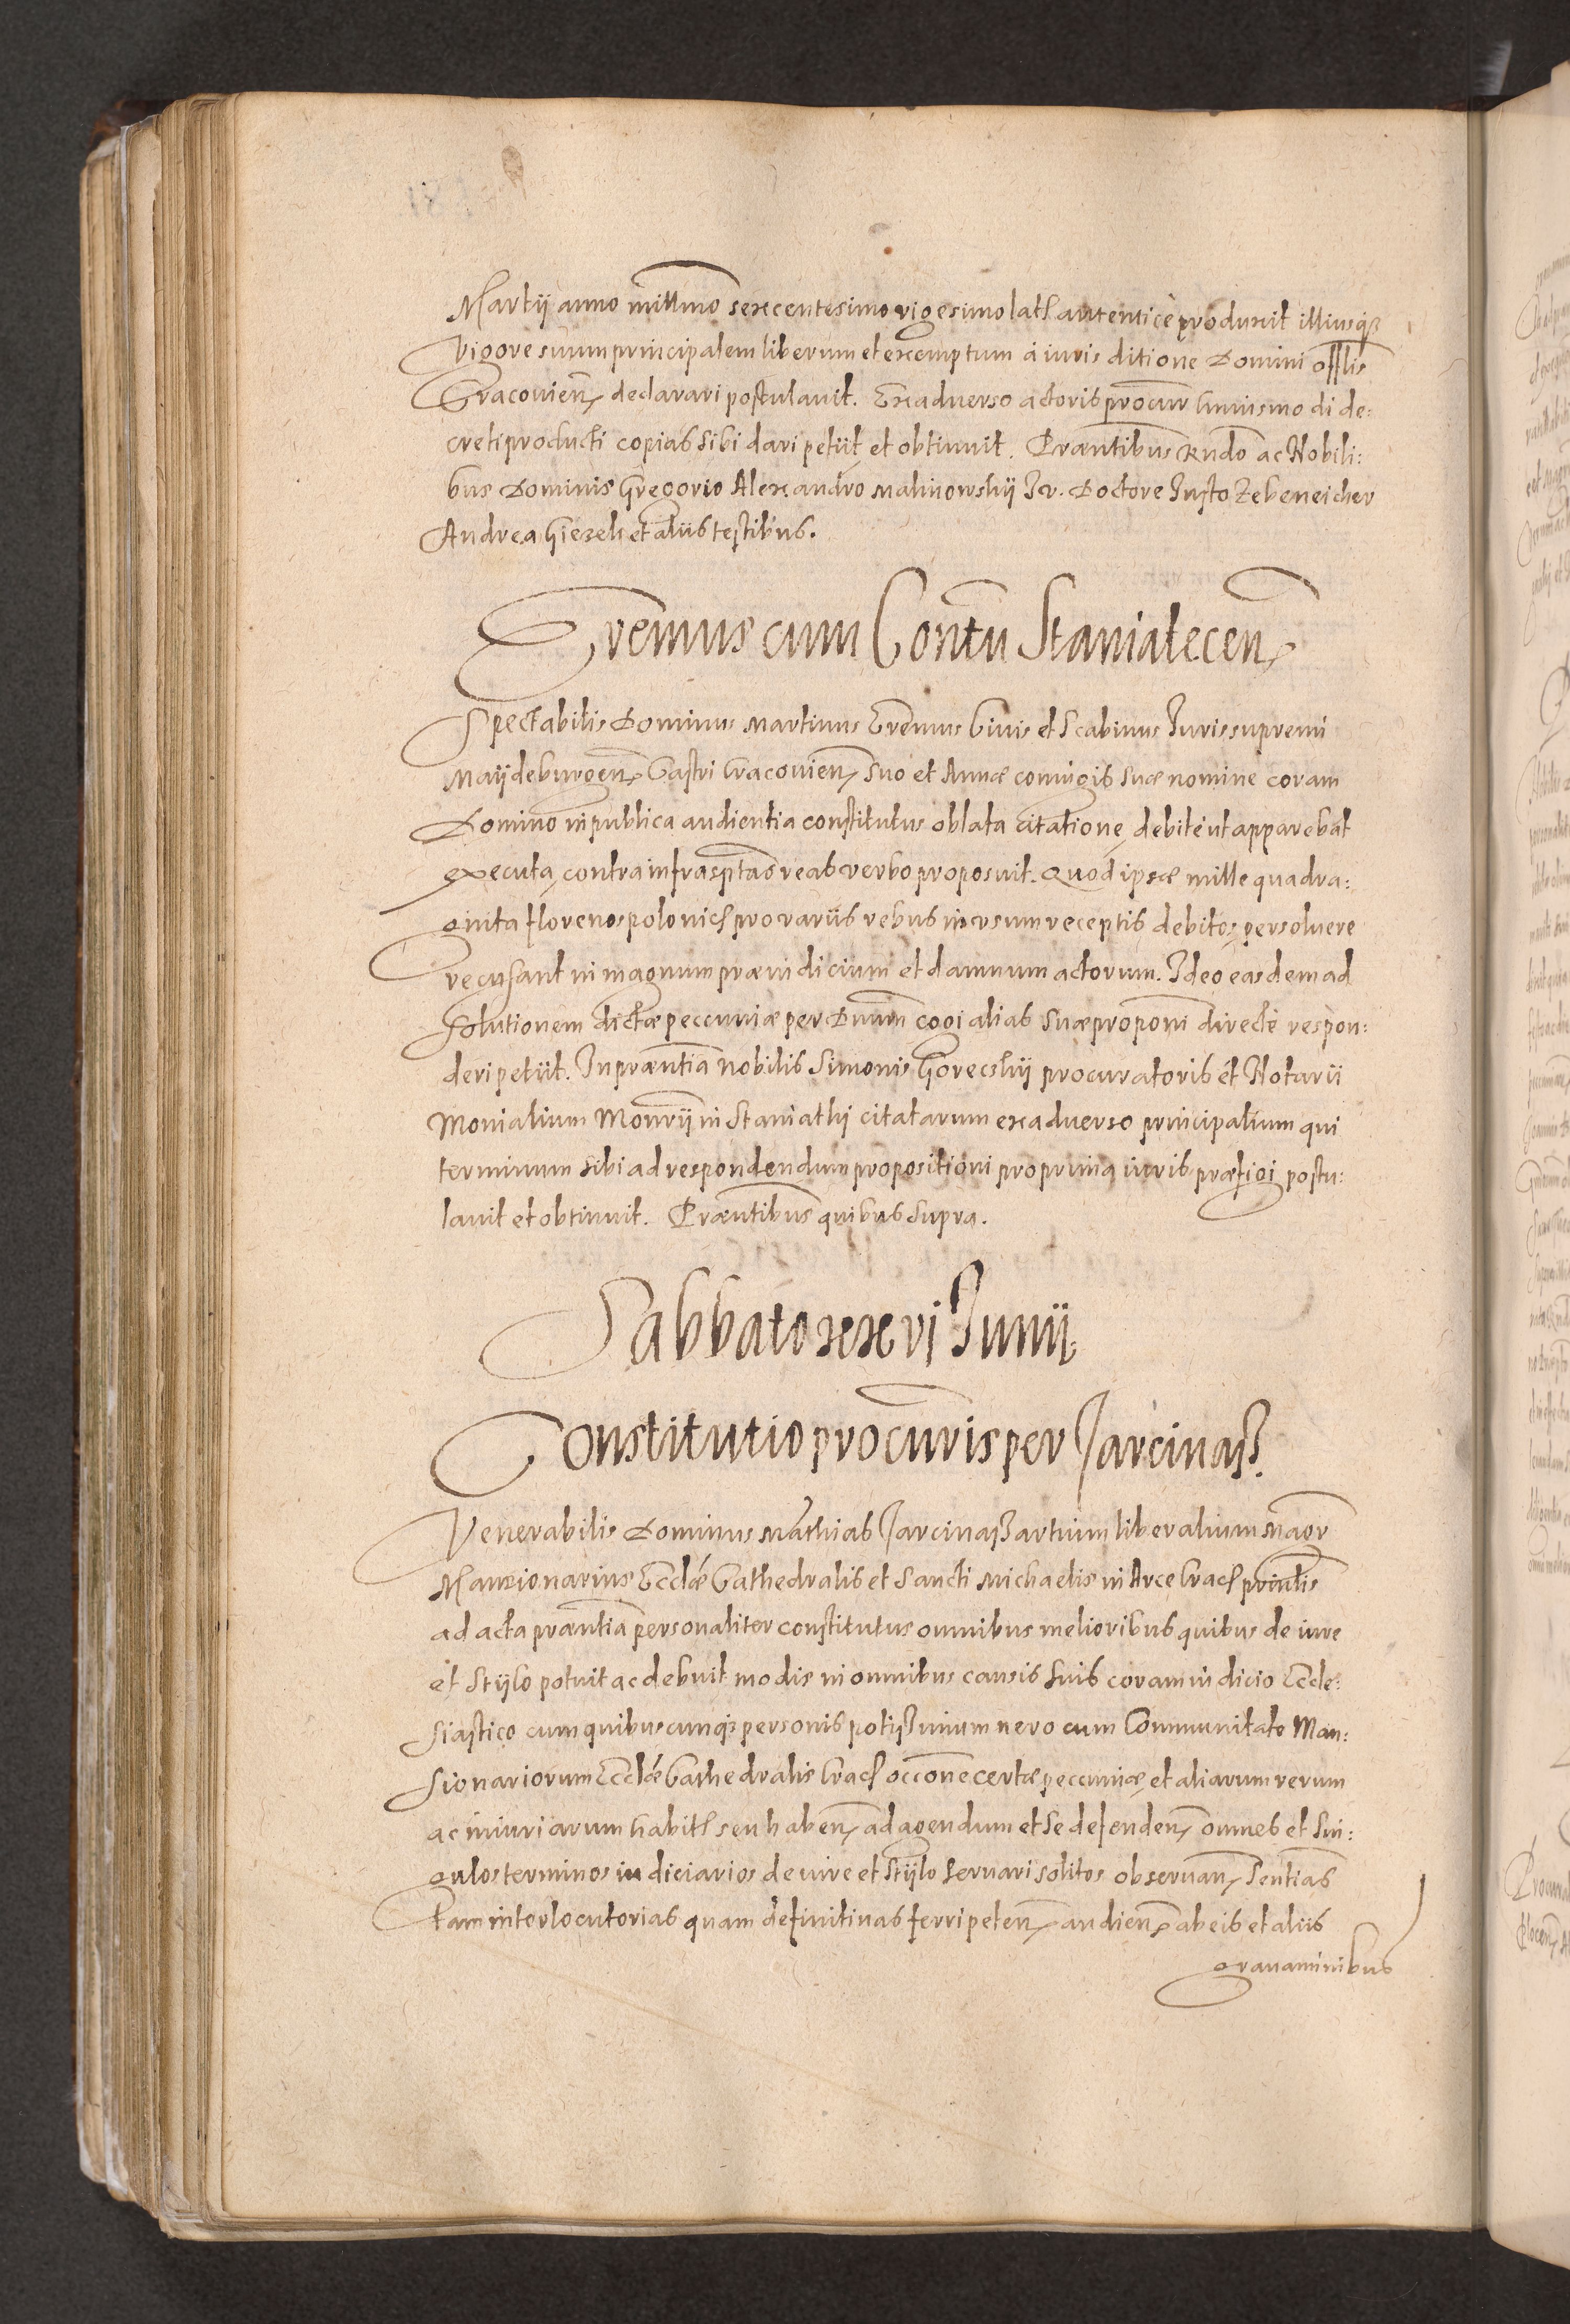 Martij anno millmo sexcentesimo vigesimo lat autenticè produxit illiusq3
vigore suum principalem liberum et exemptum à iuris ditione Domini offlis
Cracouien declarari postulauit. Ex aduerso actoris procur huiusmo di de:
creti producti copias sibi dari petiit et obtinuit. Præntibus Rndo ac Nobili:
bus Dominis Gregorio Alexandro Malinowskij Iv. Doctore Iusto Zebeneicher
Andrea Giezek et aliis testibus.
Eremus cum Contu Staniatecen
Spectabilis Dominus Martinus Eremus Ciuis et Scabinus Iuris supremi
Maijdeburgen Castri Cracouien suo et Annæ coniugis suæ nomine coram
Domino in publica audientia constitutus oblata citatione debitè ut apparebat
executa, contra infrasptas reas verbo proposuit. Quod ipsæ mille quadra:
ginta florenos polonicl pro variis rebus in vsum receptis debitos persoluere
recusant in magnum præiudicium et damnum actorum. Ideo easdem ad
solutionem dictæ peccuniæ per Dnum cogi alias suæ proponi directè respon:
deri petiit. In præntia nobilis Simonis Goreckij procuratoris et Notarii
Monialium Monrij in Staniathi citatarum ex aduerso principalium qui
terminum sibi ad respondendum propositioni pro prima iuris præfigi postu:
lauit et obtinuit. Præntibus quibus supra.
Sabbato xxvi Iunij
Constitutio procuris per Jarcinaß.
Venerabilis Dominus Mathias Jarcinaß artium liberalium Magr
Mansionarius Ecclæ Cathedralis et Sancti Michaelis in Arce Cracl printis
ad acta præntia personaliter constitutus omnibus melioribus quibus de iure
et stijlo potuit ac debuit modis in omnibus causis suis coram iudicio Eccle:
siastico cum quibuscunq3 personis potißimum vero cum Communitate Man:
sionariorum Ecclæ Cathedralis Cracl occone certæ peccuniæ et aliarum rerum
ac iniuriarum habitl seu haben ad agendum et se defenden omnes et sin:
gulos terminos iudiciarios de iure et stijlo seruari solitos obseruan sentias
tam interlocutorias quam definitiuas ferri peten audien ab eis et aliis
grauaminibus